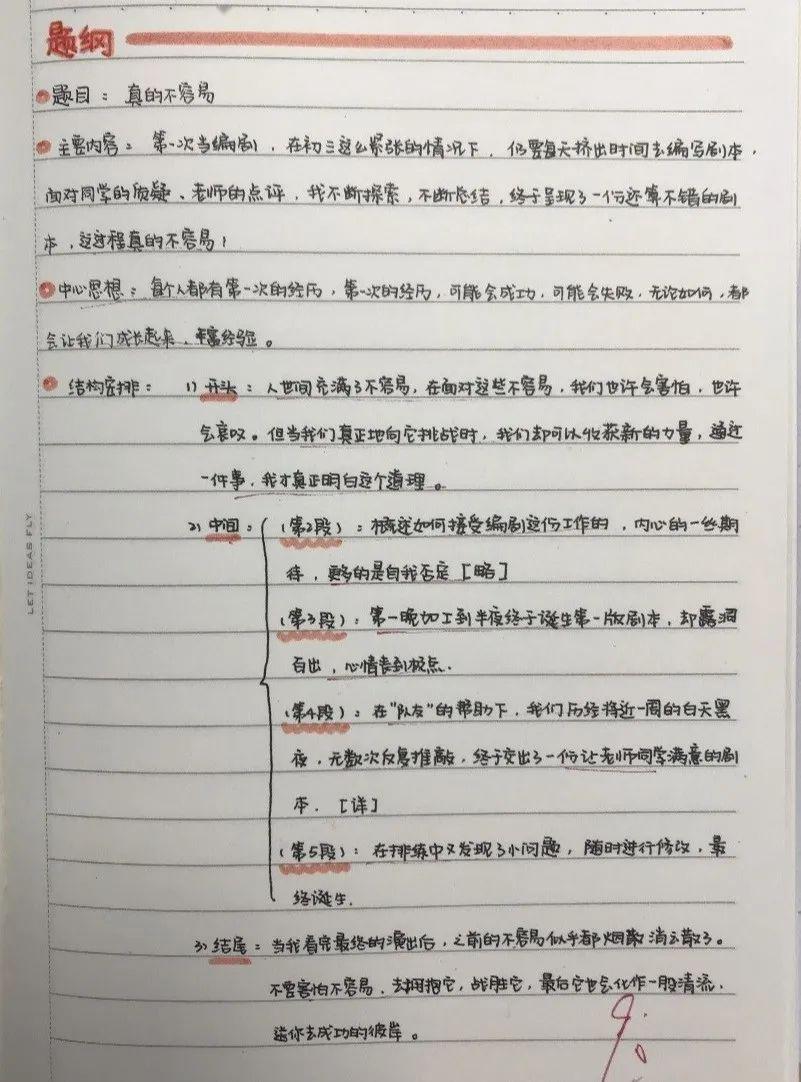 题纲
题目：真的不容易
主要内容：第一次当编剧，在初三这么紧张的情况下，仍要每天挤出时间去编写剧本，
面对同学的质疑、老师的点评，我不断探索，不断总结，终于呈现了一份还算不错的剧
本，这过程真的不容易！
中心思想：每个人都有第一次的经历，第一次的经历，可能会成功，可能会失败，无论如何，都
会让我们成长起来，丰富经验。
结构安排：1）开头：人世间充满了不容易，在面对这些不容易，我们也许会害怕，也许
会哀叹。但当我们真正地向它挑战时，我们却可以收获新的力量，通过
一件事，我才真正明白这个道理。
2）中间：（第2段）：概述如何接受编剧这份工作的，内心的一些期
待，更多的是自我否定［略］
（第3段）：第一晚加工到半夜终于诞生第一版剧本，却露洞
百出，心情丧到极点．
（第4段）：在“队友”的帮助下，我们历经将近一周的白天黑
夜，无数次反复推敲，终于交出了一份让老师同学满意的剧
本．［详］
（第5段）：在排练中又发现了小问题，随时进行修改，最
终诞生．
3）结尾：当我看完最终的演出后，之前的不容易似乎都烟散消云散了。
不要害怕不容易，去拥抱它，战胜它，最后它也会化作一股清流，
送你去成功的彼岸。
LET IDEAS FLY